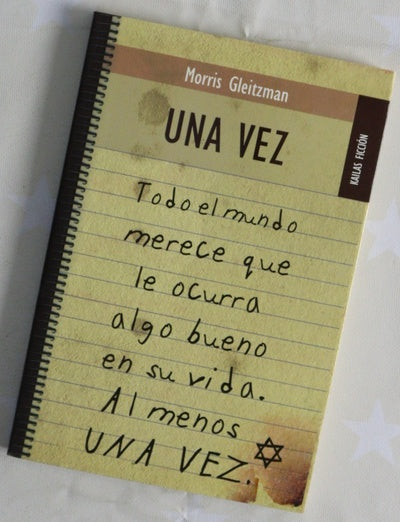 Morris Gleitzman
UNA VEZ
KAILAS FICCIÓN
Todo el mundo
merece que
le ocurra
algo bueno
en su vida.
Al menos
UNA VEZ.